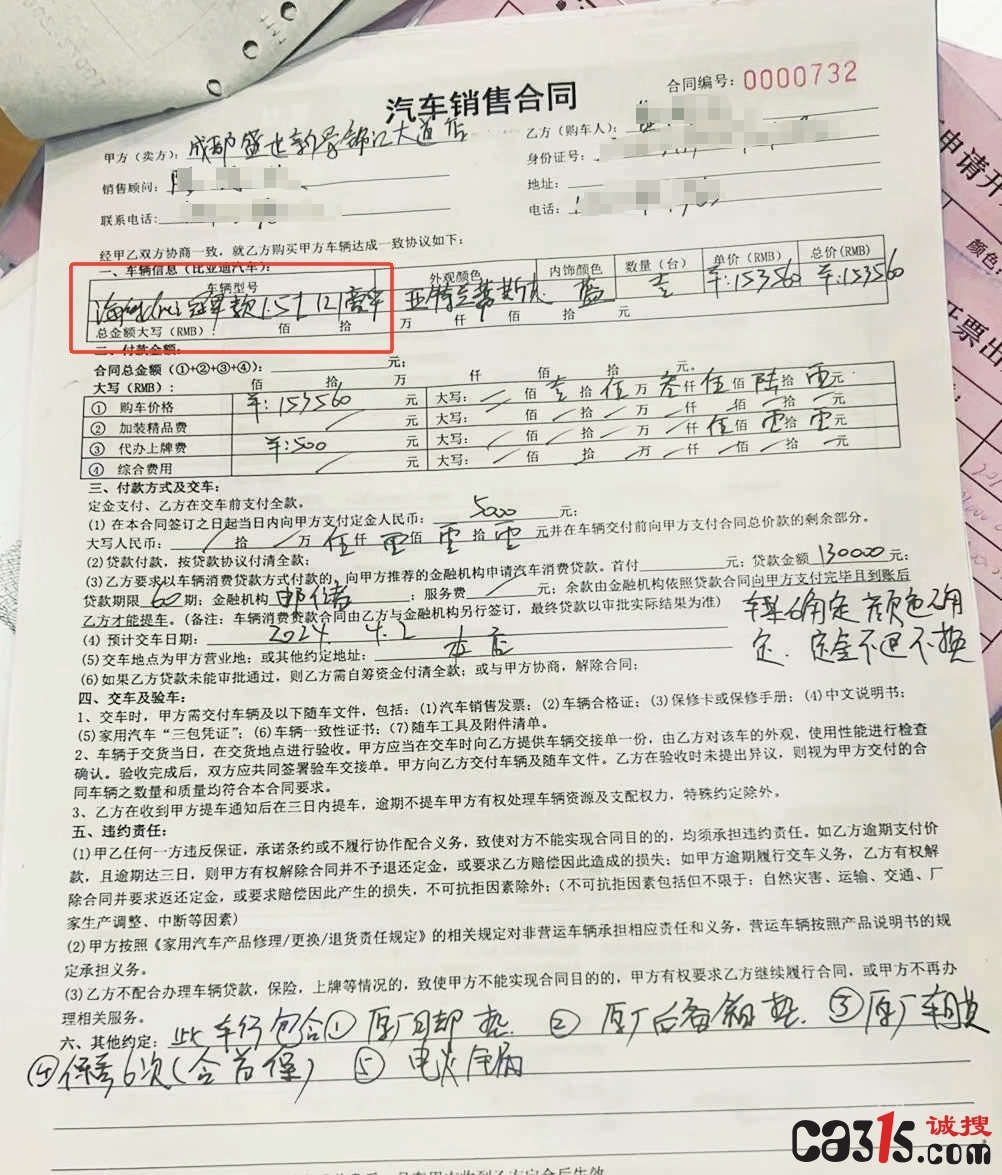 汽车销售合同
合同编号: 0000732
甲方（卖方）: 成都盛世新景锦江大道店
乙方（购车人）:
销售顾问:
身份证号:
联系电话:
地址:
电话:
经甲乙双方协商一致，就乙方购买甲方车辆达成一致协议如下:
一、车辆信息（比亚迪汽车）:
车辆型号 外观颜色 内饰颜色 数量（台） 单价（RMB） 总价(RMB)
冠军款 1.5T 121 亚特兰蒂斯 蓝 壹 ¥:153560 ¥:153560
总金额大写（RMB）: 佰 拾 万 仟 佰 拾 元
二、付款金额:
合同总金额（①+②+③+④）: 元;
大写（RMB）: 佰 拾 万 仟 佰 拾 元。
① 购车价格 ¥:153560 元 大写: 佰 壹 拾 伍 万 叁 仟 伍 佰 陆 拾 零 元
② 加装精品费 元 大写: 佰 拾 万 仟 佰 拾 元
③ 代办上牌费 ¥:500 元 大写: 佰 拾 万 仟 伍 佰 零 拾 零 元
④ 综合费用 元 大写: 佰 拾 万 仟 佰 拾 元
三、付款方式及交车:
定金支付、乙方在交车前支付全款。
(1) 在本合同签订之日起当日内向甲方支付定金人民币: 5000 元;
大写人民币: 拾 万 伍 仟 零 佰 零 拾 零 元并在车辆交付前向甲方支付合同总价款的剩余部分。
(2)贷款付款，按贷款协议付清全款:
(3)乙方要求以车辆消费贷款方式付款的，向甲方推荐的金融机构申请汽车消费贷款。首付 元; 贷款金额 130000 元;
贷款期限 60 期; 金融机构 邮储 ; 服务费 元; 余款由金融机构依照贷款合同向甲方支付完毕且到账后
乙方才能提车。(备注: 车辆消费贷款合同由乙方与金融机构另行签订，最终贷款以审批实际结果为准)
(4) 预计交车日期: 2024 4.2
(5)交车地点为甲方营业地; 或其他约定地址: 本店
车架确定 颜色确定. 定金不退不换
(6)如果乙方贷款未能审批通过，则乙方需自筹资金付清全款; 或与甲方协商，解除合同;
四、交车及验车:
1、交车时，甲方需交付车辆及以下随车文件，包括: (1)汽车销售发票; (2)车辆合格证; (3)保修卡或保修手册; (4)中文说明书;
(5)家用汽车“三包凭证”; (6)车辆一致性证书; (7)随车工具及附件清单。
2、车辆于交货当日，在交货地点进行验收。甲方应当在交车时向乙方提供车辆交接单一份，由乙方对该车的外观，使用性能进行检查
确认。验收完成后，双方应共同签署验车交接单。甲方向乙方交付车辆及随车文件。乙方在验收时未提出异议，则视为甲方交付的合
同车辆之数量和质量均符合本合同要求。
3、乙方在收到甲方提车通知后在三日内提车，逾期不提车甲方有权处理车辆资源及支配权力，特殊约定除外。
五、违约责任:
(1)甲乙任何一方违反保证，承诺条约或不履行协作配合义务，致使对方不能实现合同目的的，均须承担违约责任。如乙方逾期支付价
款，且逾期达三日，则甲方有权解除合同并不予退还定金，或要求乙方赔偿因此造成的损失; 如甲方逾期履行交车义务，乙方有权解
除合同并要求返还定金，或要求赔偿因此产生的损失，不可抗拒因素除外; (不可抗拒因素包括但不限于: 自然灾害、运输、交通、厂
家生产调整、中断等因素)
(2)甲方按照《家用汽车产品修理/更换/退货责任规定》的相关规定对非营运车辆承担相应责任和义务，营运车辆按照产品说明书的规
定承担义务。
(3)乙方不配合办理车辆贷款，保险，上牌等情况的，致使甲方不能实现合同目的的，甲方有权要求乙方继续履行合同，或甲方不再办
理相关服务。
六、其他约定: 此车行包含① 原厂脚垫. ② 原厂后备箱垫. ③原厂车膜
④保养6次(含首保) ⑤
申请开
颜色:
开票出
ca315.com
诚搜